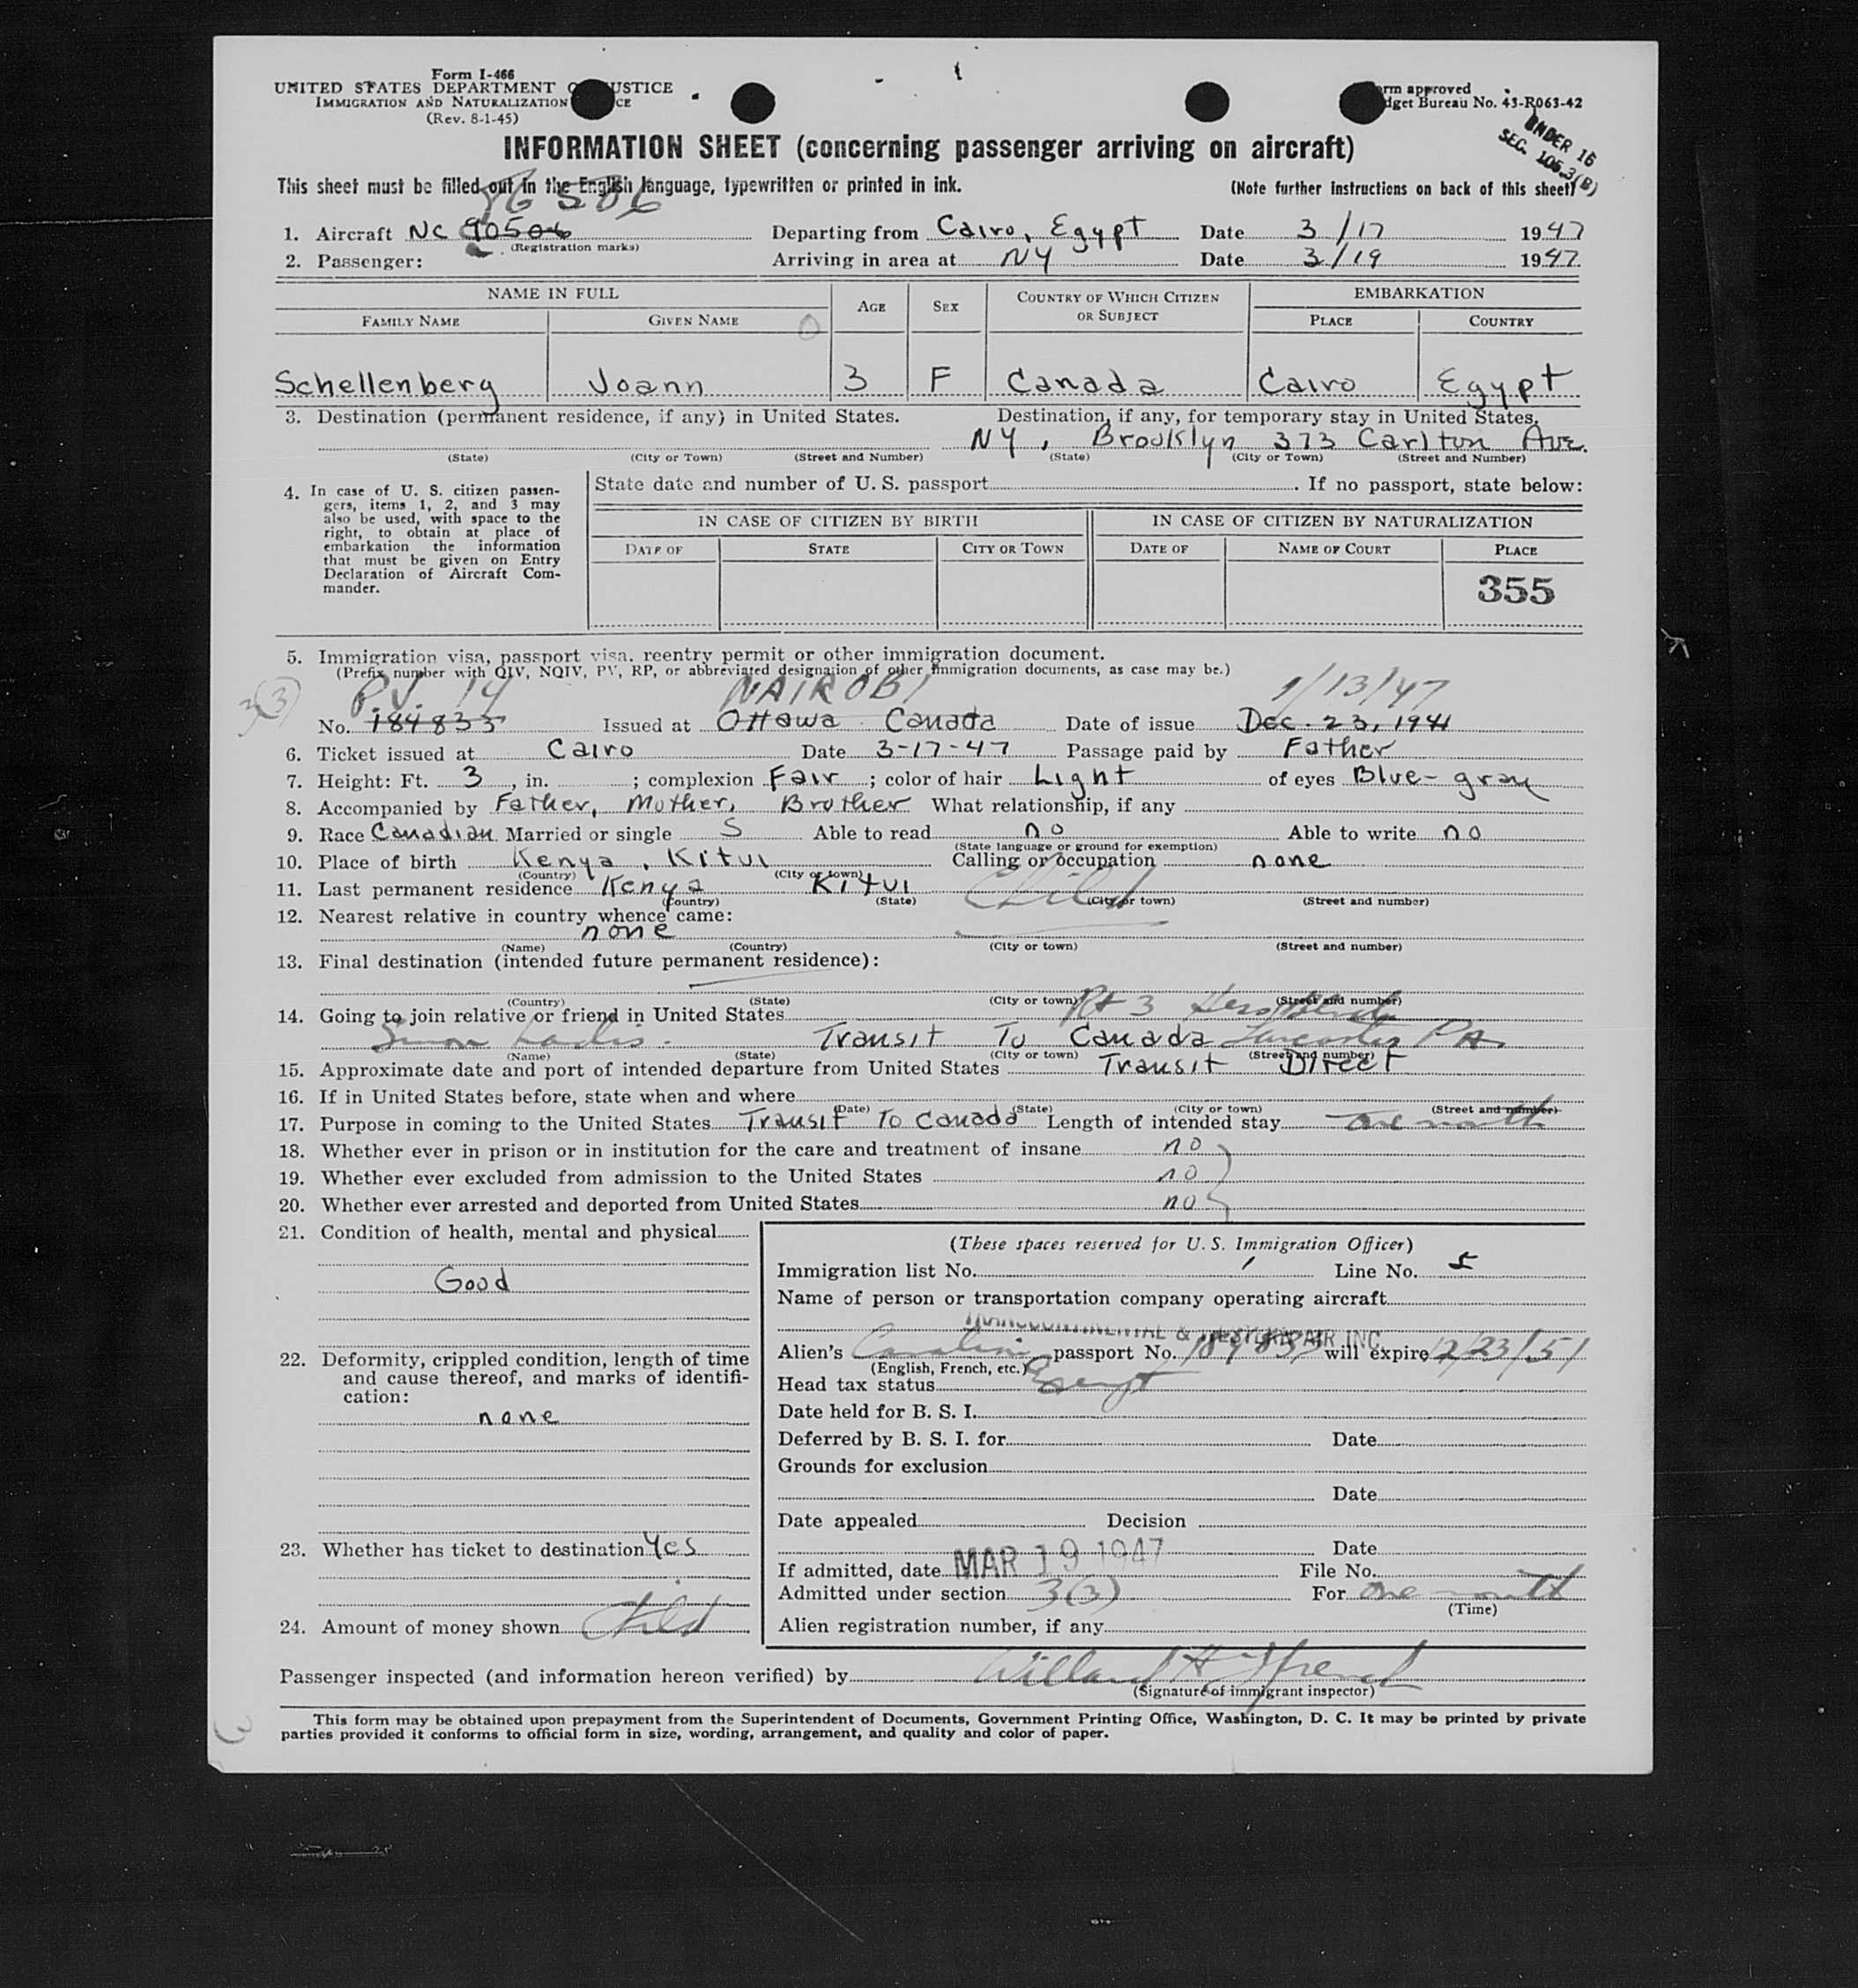 Form I-466
UNITED STATES DEPARTMENT JUSTICE
IMMIGRATION AND NATURALIZATION
(Rev. 8-1-45)
approved
Budget Bureau No. 43-R063-42
UNDER 16
SEC. 105.3(B)
INFORMATION SHEET (concerning passenger arriving on aircraft)
This sheet must be filled out in the English language, typewritten or printed in ink. (Note further instructions on back of this sheet)
1. Aircraft NC 90506 Departing from Cairo, Egypt Date 3/17 1947
(Registration marks)
2. Passenger: Arriving in area at NY Date 3/19 1947
NAME IN FULL AGE SEX COUNTRY OF WHICH CITIZEN OR SUBJECT EMBARKATION
FAMILY NAME GIVEN NAME PLACE COUNTRY
Schellenberg Joann 3 F Canada Cairo Egypt
3. Destination (permanent residence, if any) in United States. Destination, if any, for temporary stay in United States.
NY, Brooklyn 373 Carlton Ave.
(State) (City or Town) (Street and Number) (State) (City or Town) (Street and Number)
4. In case of U. S. citizen passen-
gers, items 1, 2, and 3 may
also be used, with space to the
right, to obtain at place of
embarkation the information
that must be given on Entry
Declaration of Aircraft Com-
mander.
State date and number of U. S. passport . If no passport, state below:
IN CASE OF CITIZEN BY BIRTH IN CASE OF CITIZEN BY NATURALIZATION
DATE OF STATE CITY OR TOWN DATE OF NAME OF COURT PLACE
355
5. Immigration visa, passport visa, reentry permit or other immigration document.
(Prefix number with QIV, NQIV, PV, or RP, or abbreviated designation of other immigration documents, as case may be.)
3(3) P.V. 14 NAIROBI 1/13/47
No. 184833 Issued at Ottawa Canada Date of issue Dec. 23, 1941
6. Ticket issued at Cairo Date 3-17-47 Passage paid by Father
7. Height: Ft. 3, in. ; complexion Fair; color of hair Light of eyes Blue-gray
8. Accompanied by Father, Mother, Brother What relationship, if any
9. Race Canadian Married or single S Able to read no Able to write no
(State language or ground for exemption)
10. Place of birth Kenya, Kitui Calling or occupation none
(Country) (City or town)
11. Last permanent residence Kenya Kitui Child
(Country) (State) (City or town) (Street and number)
12. Nearest relative in country whence came:
none
(Name) (Country) (City or town) (Street and number)
13. Final destination (intended future permanent residence):
(Country) (State) (City or town) (Street and number)
14. Going to join relative or friend in United States Rt 3
Simon Transit To Canada Lancaster PA.
(Name) (State) (City or town) (Street and number)
15. Approximate date and port of intended departure from United States Transit Direct
16. If in United States before, state when and where
(Date) (State) (City or town) (Street and number)
17. Purpose in coming to the United States Transit To Canada Length of intended stay one month
18. Whether ever in prison or in institution for the care and treatment of insane no
19. Whether ever excluded from admission to the United States no
20. Whether ever arrested and deported from United States no
21. Condition of health, mental and physical
Good
22. Deformity, crippled condition, length of time
and cause thereof, and marks of identifi-
cation:
none
23. Whether has ticket to destination Yes
24. Amount of money shown Child
(These spaces reserved for U. S. Immigration Officer)
Immigration list No. 1 Line No. 5
Name of person or transportation company operating aircraft
TRANSCONTINENTAL & WESTERN AIR INC.
Alien's Canadian passport No. 184833 will expire 12/23/51
(English, French, etc.)
Head tax status Exempt
Date held for B. S. I.
Deferred by B. S. I. for Date
Grounds for exclusion
Date
Date appealed Decision
Date
If admitted, date MAR 19 1947 File No.
Admitted under section 3(3) For one month
(Time)
Alien registration number, if any
Passenger inspected (and information hereon verified) by Willard H
(Signature of immigrant inspector)
This form may be obtained upon prepayment from the Superintendent of Documents, Government Printing Office, Washington, D. C. It may be printed by private
parties provided it conforms to official form in size, wording, arrangement, and quality and color of paper.